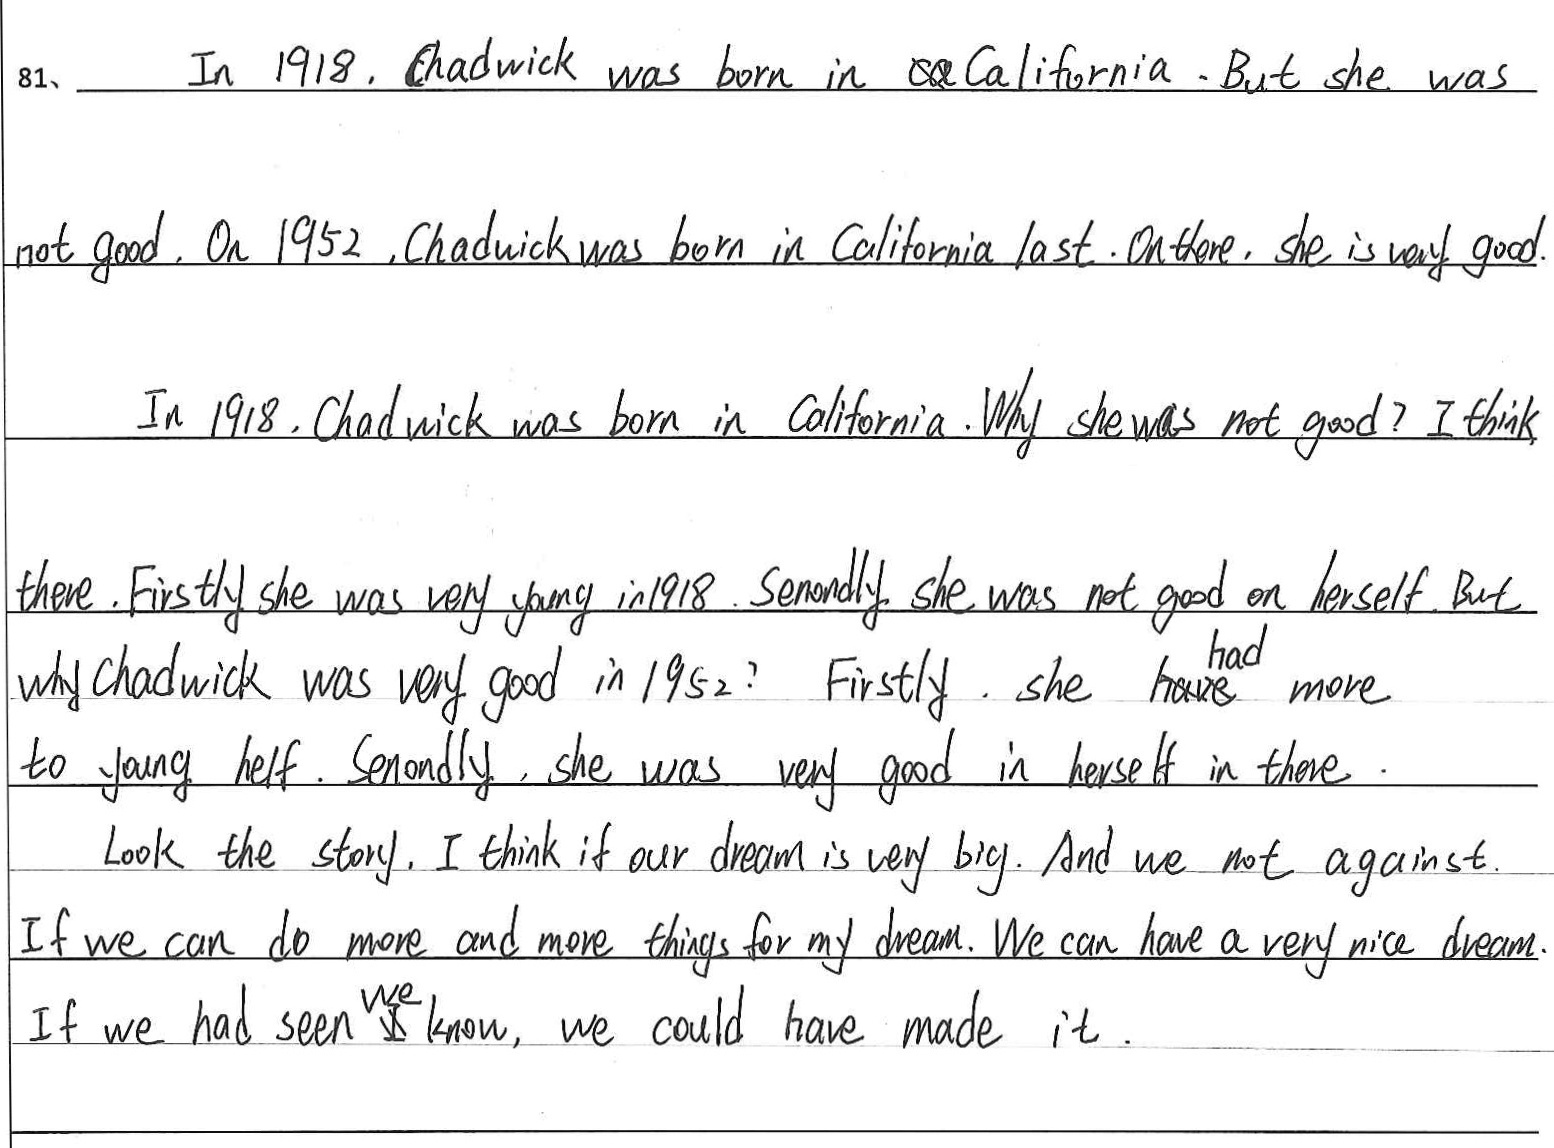 81、 In 1918. Chadwick was born in California. But she was
not good. On 1952, Chadwick was born in California last. On there. she is very good.
In 1918. Chadwick was born in California. Why she was not good? I think
there. Firstly she was very young in 1918. Senondly she was not good on herself. But
why Chadwick was very good in 1952? Firstly. she had more
to young helf. Senondly, she was very good in herself in there.
Look the story. I think if our dream is very big. And we not against.
If we can do more and more things for my dream. We can have a very nice dream.
If we had seen we know, we could have made it.